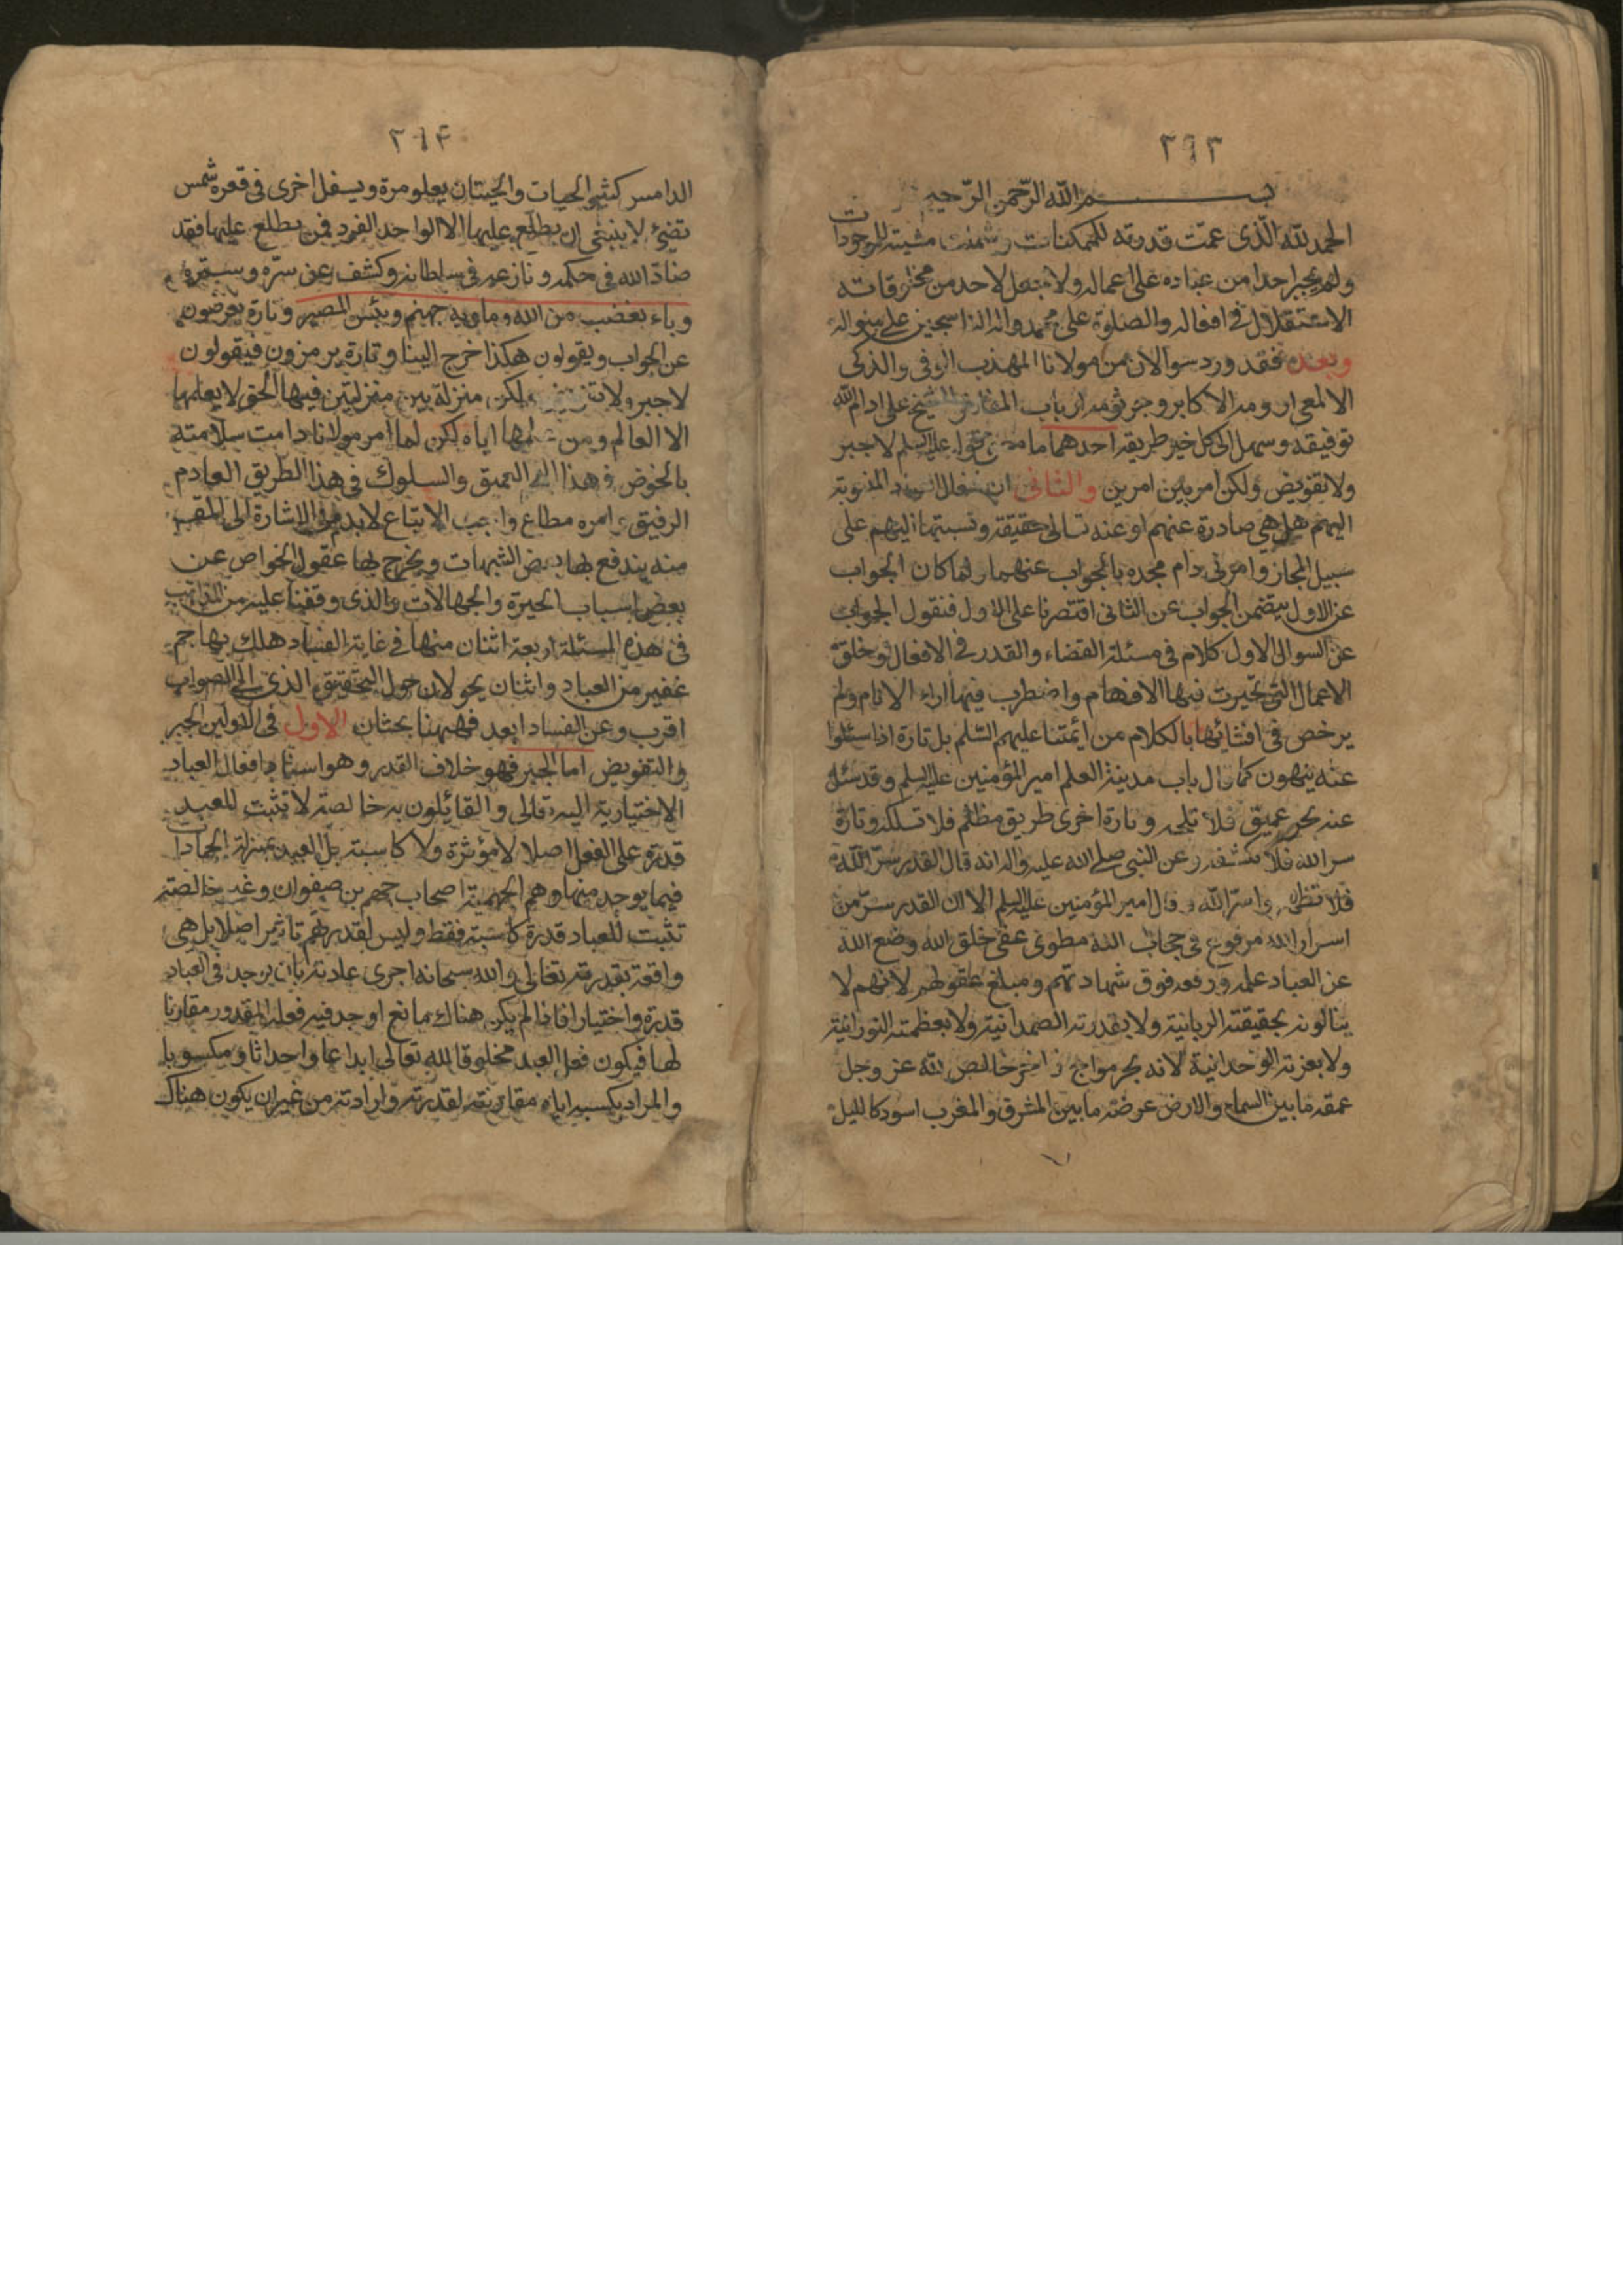 ٢٩٣
بسم الله الرحمن الرحيم
الحمد لله الذى عمّت قدرته للممكنات وشملت مشيته للموجودات
ولم يجبر احدا من عباده على اعماله ولا جعل لاحد من مخلوقاته
الاستقلال فى افعاله والصلوة على محمد واله الناسجين على منواله
وبعد فقد ورد سوالان من مولانا المهذب الوفى والذكى
الالمعى ارومه الاكابر وجرثومه ارباب المفاخر الشيخ على ادام الله
توفيقه وسهل الى كل خير طريقه احدهما ما معنى قوله عليه السلم لا جبر
ولا تفويض ولكن امر بين امرين والثانى ان افعال العباد المنسوبة
اليهم هل هى صادرة عنهم او عنه تعالى حقيقة ونسبتها اليهم على
سبيل المجاز وامرنى دام مجده بالجواب عنهما ولما كان الجواب
عن الاول يتضمن الجواب عن الثانى اقتصرنا على الاول فنقول الجواب
عن السوال الاول كلام فى مسئلة القضاء والقدر فى الافعال وخلق
الاعمال التى تحيّرت فيها الافهام واضطرب فيها اراء الانام ولم
يرخص فى افشائها بالكلام من ائمتنا عليهم السّلم بل تارة اذا سئلوا
عنه ينهون كما قال باب مدينة العلم امير المؤمنين عليه السلم وقد سئل
عنه بحر عميق فلا تلجه وتارة اخرى طريق مظلم فلا تسلكه وتارة
سر الله فلا تكشفه وعن النبى صلى الله عليه واله انه قال القدر سرّ الله
فلا تظهروا سرّ الله وقال امير المؤمنين عليه السلم الا ان القدر سرّ من
اسرار الله مرفوع فى حجاب الله مطوى عن خلق الله وضع الله
عن العباد علمه ورفعه فوق شهادتهم ومبلغ عقولهم لانهم لا
ينالونه بحقيقته الربانية ولا بقدرته الصمدانية ولا بعظمته النورانية
ولا بعزته الوحدانية لانه بحر مواج زاخر خالص لله عز وجل
عمقه ما بين السماء والارض عرضه ما بين المشرق والمغرب اسود كالليل
٢٩٤
الدامس كثير الحيات والحيتان يعلو مرة ويسفل اخرى فى قعره شمس
تضئ لا ينبغى ان يطلع عليها الا الواحد الفرد فمن يطلع عليها فقد
ضادّ الله فى حكمه ونازعه فى سلطانه وكشف عن سرّه وستره
وباء بغضب من الله وماويه جهنم وبئس المصير وتارة يعرضون
عن الجواب ويقولون هكذا خرج الينا وتارة يرمزون فيقولون
لا جبر ولا تفويض ولكن منزلة بين منزلتين فيها الحق لا يعلمها
الا العالم ومن علمها اياه لكن لما امر مولانا دامت سلامته
بالخوض فى هذا اليم العميق والسلوك فى هذا الطريق العادم
الرفيق وامره مطاع واجب الاتباع لا بد من الاشارة الى
منه يندفع بها بعض الشبهات ويخرج بها عقول الخواص عن
بعض اسباب الحيرة والجهالات والذى وقفنا عليه من المذاهب
فى هذه المسئلة اربعة اثنان منها فى غاية الفساد هلك بها جم
غفير من العباد واثنان يحولان حول التحقيق الذى الى الصواب
اقرب وعن الفساد ابعد فههنا بحثان الاول فى القولين الجبر
والتفويض اما الجبر فهو خلاف القدر وهو اسناد افعال العباد
الاختيارية اليه تعالى والقائلون به خالصة لا تثبت للعبد
قدرة على الفعل اصلا لا مؤثرة ولا كاسبة بل العبد بمنزلة الجمادات
فيما يوجد منها وهم الجهمية اصحاب جهم بن صفوان وغير خالصة
تثبت للعباد قدرة كاسبة فقط وليس لقدرتهم تاثير اصلا بل هى
واقعة بقدرته تعالى والله سبحانه اجرى عادته بان يوجد فى العباد
قدرة واختيارا فاذا لم يكن هناك مانع اوجد فيه فعله المقدور مقارنا
لها فيكون فعل العبد مخلوقا لله تعالى ابداعا واحداثا ومكسوبا
والمراد بكسبه اياه مقارنته لقدرته وارادته من غير ان يكون هناك